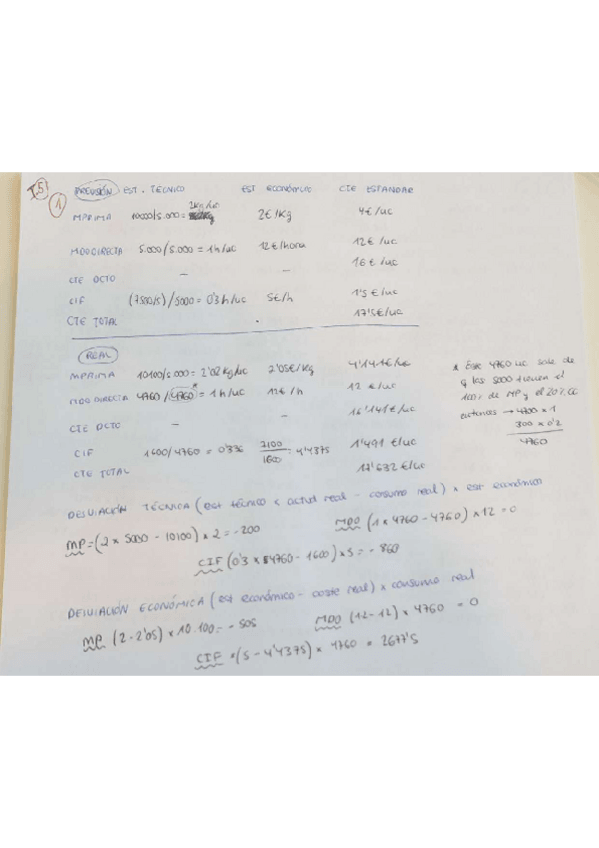 T.5
1
PREVISIÓN EST. TÉCNICO EST ECONÓMICO CTE ESTANDAR
MPRIMA 10000/5.000= 2kg/uc 2€/Kg 4€/uc
MOD DIRECTA 5.000/5.000 = 1h/uc 12€/hora 12€/uc
16€/uc
CTE DCTO – –
CIF (7500/5)/5000 = 0'3h/uc 5€/h 1'5€/uc
CTE TOTAL 17'5€/uc
REAL
MPRIMA 10100/5.000 = 2'02 Kg/uc 2'05€/Kg 4'141€/uc
MOD DIRECTA 4760/4760* = 1h/uc 12€/h 12 €/uc
16'141€/uc
CTE DCTO –
CIF 1600/4760 = 0'336 7100/1600 = 4'4375 1'491 €/uc
CTE TOTAL 17'632 €/uc
* Este 4760 uc sale de
q las 5000 tienen el
100% de MP y el 20% CC
entonces → 4700 x 1
300 x 0'2
4760
DESVIACIÓN TÉCNICA (est técnico x actvd real - consumo real) x est económico
MP = (2 x 5000 - 10100) x 2 = -200 MDO (1 x 4760 - 4760) x 12 = 0
CIF (0'3 x 4760 - 1600) x 5 = - 860
DESVIACIÓN ECONÓMICA (est económico - coste real) x consumo real
MP (2-2'05) x 10.100 = - 505 MDO (12-12) x 4760 = 0
CIF (5 - 4'4375) x 4760 = 2677'5